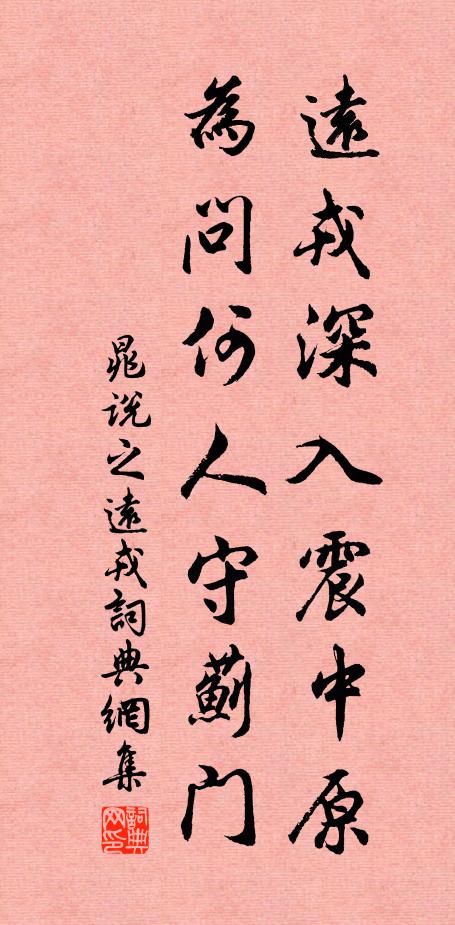 遠戎深入震中原
為問何人守薊門
晁說之遠戎詞典網集
詞典网印